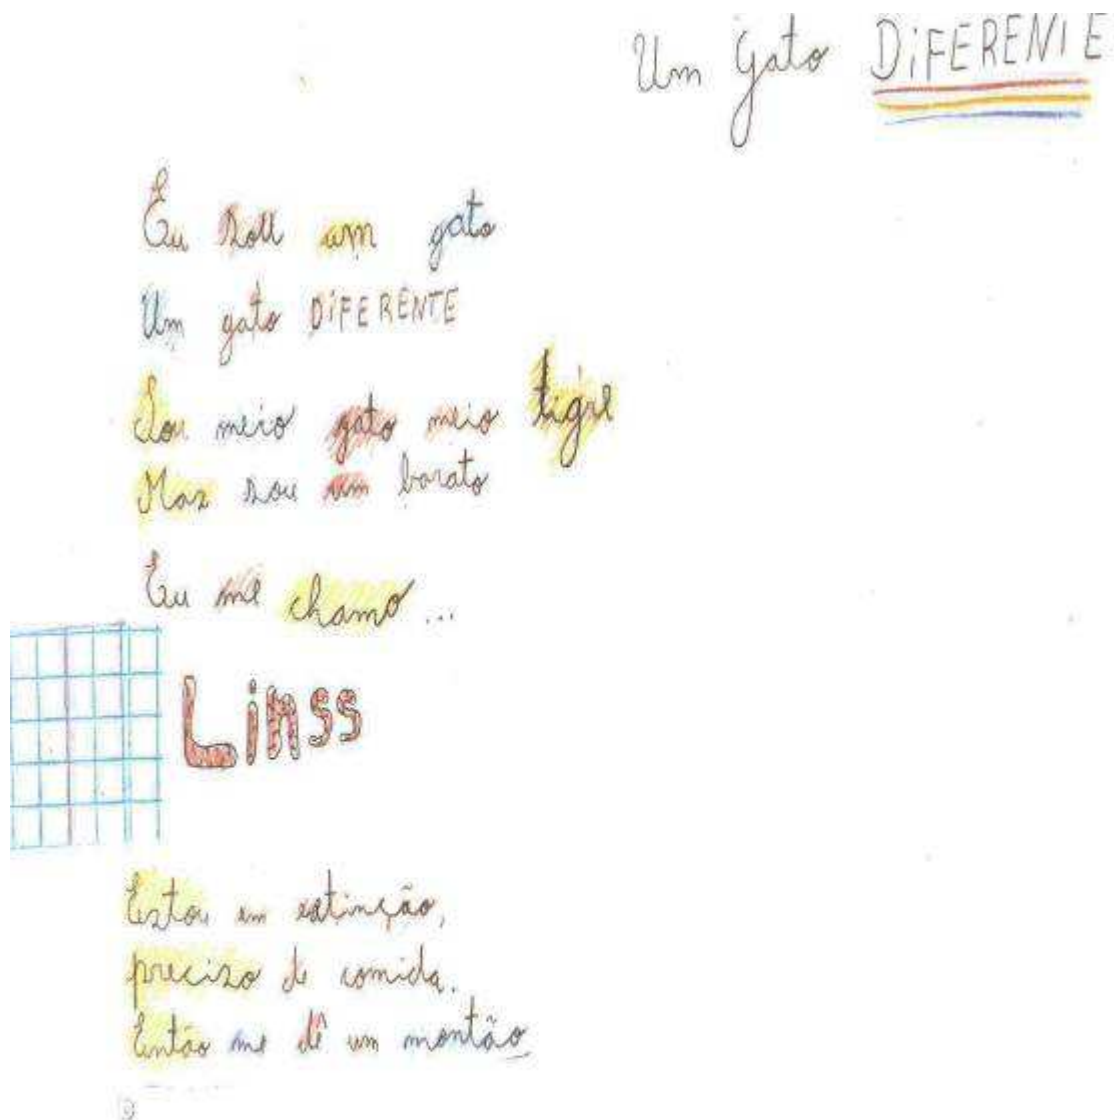 Um gato DiFERENTE
Eu sou um gato
Um gato DiFERENTE
Sou meio gato meio tigre
Mas sou um barato
Eu me chamo...
Linss
Estou em extinção,
preciso de comida.
Então me dê um montão